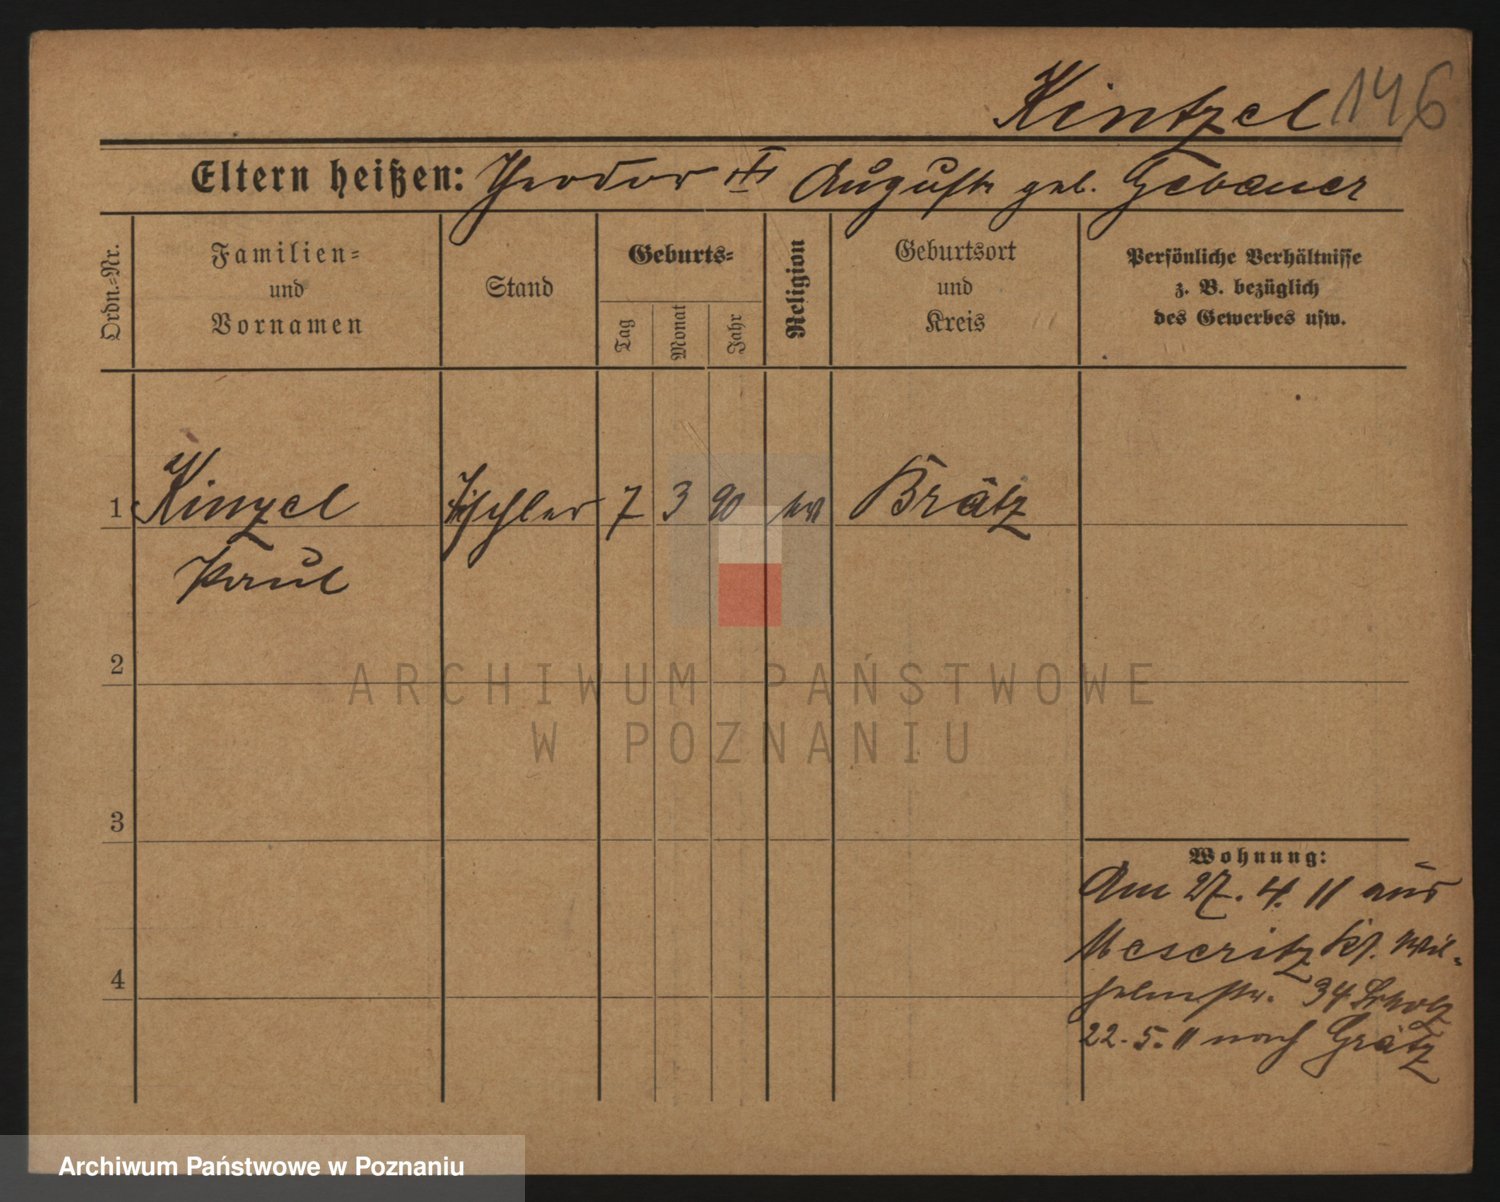 Kintzel 146
Eltern heißen: Theodor Auguste geb. Gebauer
Ordn.-Nr.
Familien-
und
Vornamen
Stand
Geburts-
Tag
Monat
Jahr
Religion
Geburtsort
und
Kreis
Persönliche Verhältnisse
z. B. bezüglich
des Gewerbes usw.
1 Kinzel Tischler 7 3 90 ev Brätz
Paul
2
3
4
Wohnung:
Am 27. 4. 11 aus
Meseritz Kl. Wil-
helmstr. 34
22. 5. 11 nach Grätz
ARCHIWUM PAŃSTWOWE
W POZNANIU
Archiwum Państwowe w Poznaniu